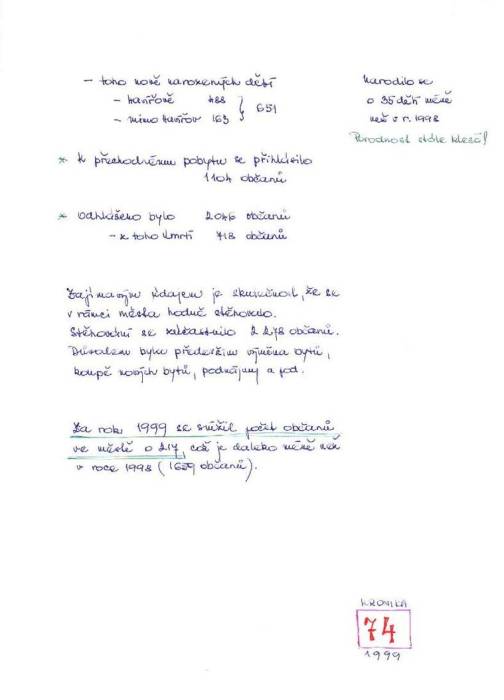 - toho nově narozených dětí
- Havířově 488 } 651
- mimo Havířov 163
Narodilo se
o 35 dětí méně
než v r. 1998
Porodnost stále klesá!
* K přechodnému pobytu se přihlásilo
1104 občanů
* Odhlášeno bylo 2046 občanů
- z toho úmrtí 718 občanů
Zajímavým údajem je skutečnost, že se
v rámci města hodně stěhovalo.
Stěhování se zúčastnilo 2 278 občanů.
Důvodem byla především výměna bytů,
koupě nových bytů, podnájmy a pod.
Za rok 1999 se snížil počet občanů
ve městě o 217, což je daleko méně než
v roce 1998 (občanů).
KRONIKA
74
1999